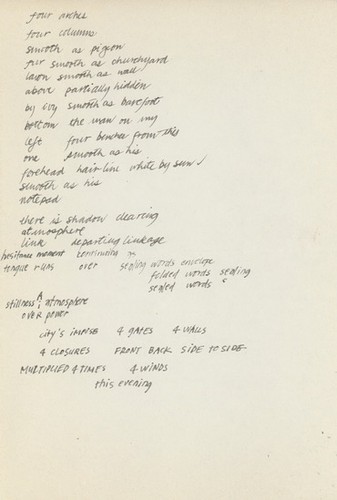 four arches
four columns
smooth as pigeon
fur smooth as churchyard
lawn smooth as wall
above partially hidden
by ivy smooth as barefoot
bottom the man on my
left four benches from this
one smooth as his
forehead hair-line white by sun
smooth as his
notepad
there is shadow clearing
atmosphere
link departing linkage
hesitance moment continuing
tongue runs over sealing words envelope
folded words sealing
sealed words
stillness A atmosphere
over power
CITY'S IMPULSE 4 GATES 4 WALLS
4 CLOSURES FRONT BACK SIDE TO SIDE
MULTIPLIED 4 TIMES 4 WINDS
this evening